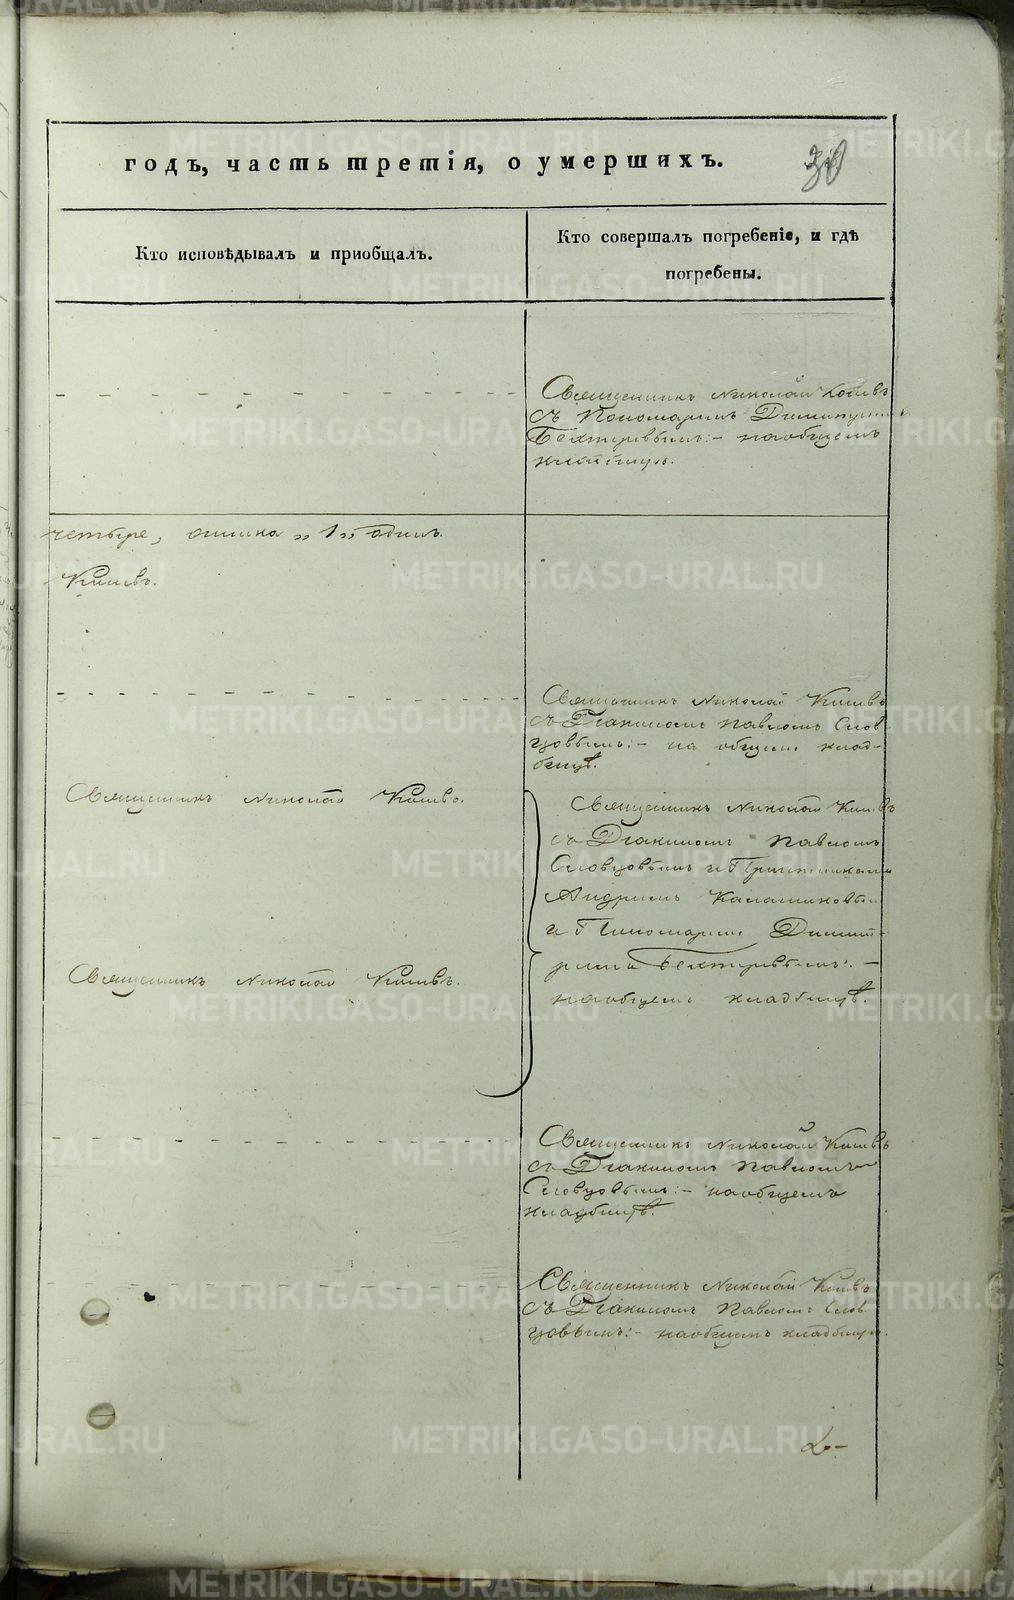 годъ, часть третія, о умершихъ.
30
Кто исповѣдывалъ и приобщалъ.
Кто совершалъ погребеніе, и гдѣ
погребены.
Священникъ Николай
съ Пономаремъ
Бехтеревымъ:- на общемъ
четыре, " 1 " одинъ.
Священникъ Николай
съ Діакономъ Павломъ Слов-
цовымъ:- на общемъ клад-
бищѣ.
Священникъ Николай
Священникъ Николай
съ Діакономъ Павломъ
Словцовымъ и
Андреемъ
и Пономаремъ Димит-
ріемъ Бехтеревымъ:-
на общемъ кладбищѣ.
Священникъ Николай
Священникъ Николай
съ Діакономъ Павломъ
Словцовымъ:- на общемъ
кладбищѣ.
Священникъ Николай
съ Діакономъ Павломъ Слов-
цовымъ:- на общемъ кладбищѣ.
METRIKI.GASO-URAL.RU